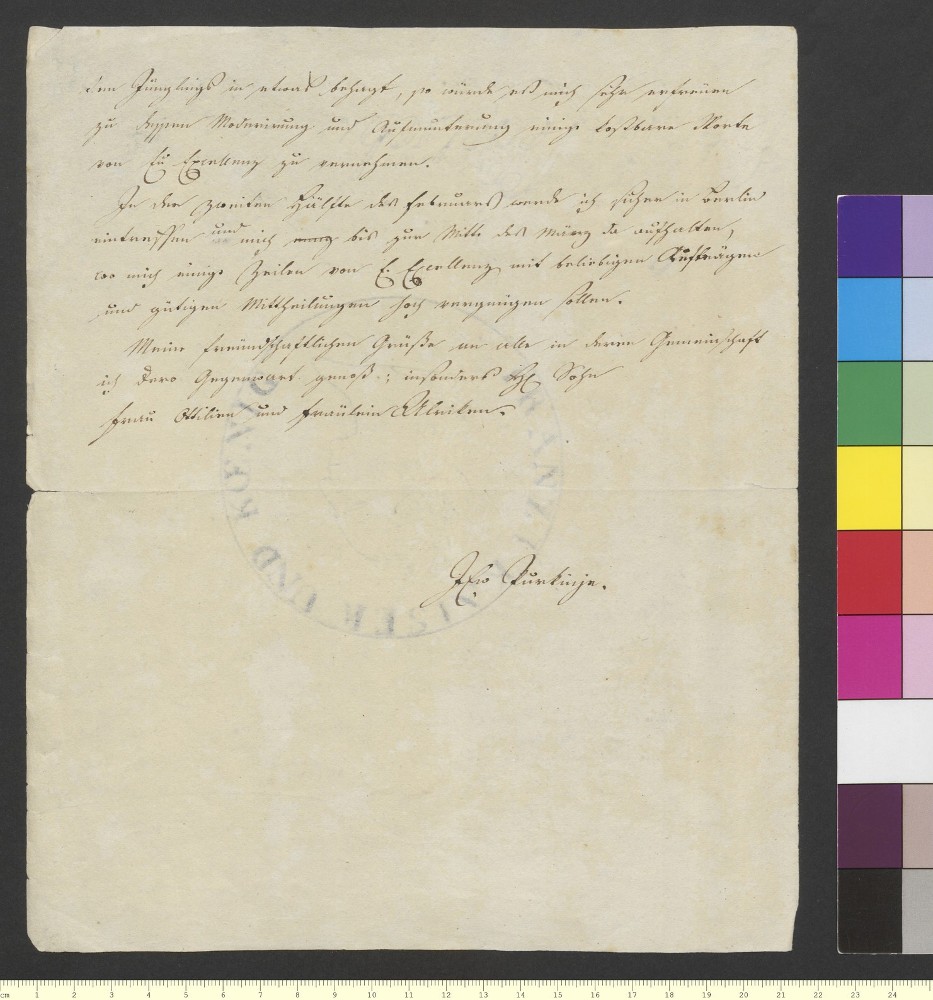 den Jünglings in etwas behagt, so würde es mich sehr erfreuen
zu dessen Moderirung und Aufmunterung einige kostbare Worte
von Eu Excellenz zu vernehmen.
In der zweiten Hälfte des Februars werde ich sicher in Berlin
eintreffen und mich bis zur Mitte des März da aufhalten,
wo mich einige Zeilen von E. Excellenz mit beliebigen Aufträgen
und gütigen Mittheilungen hoch vergnügen sollen.
Meine freundschaftlichen Grüße an alle in deren Gemeinschaft
ich Dero Gegenwart genoß; insonders H Sohn
Frau Ottilien und Fräulein Ulriken.
Purkinje.